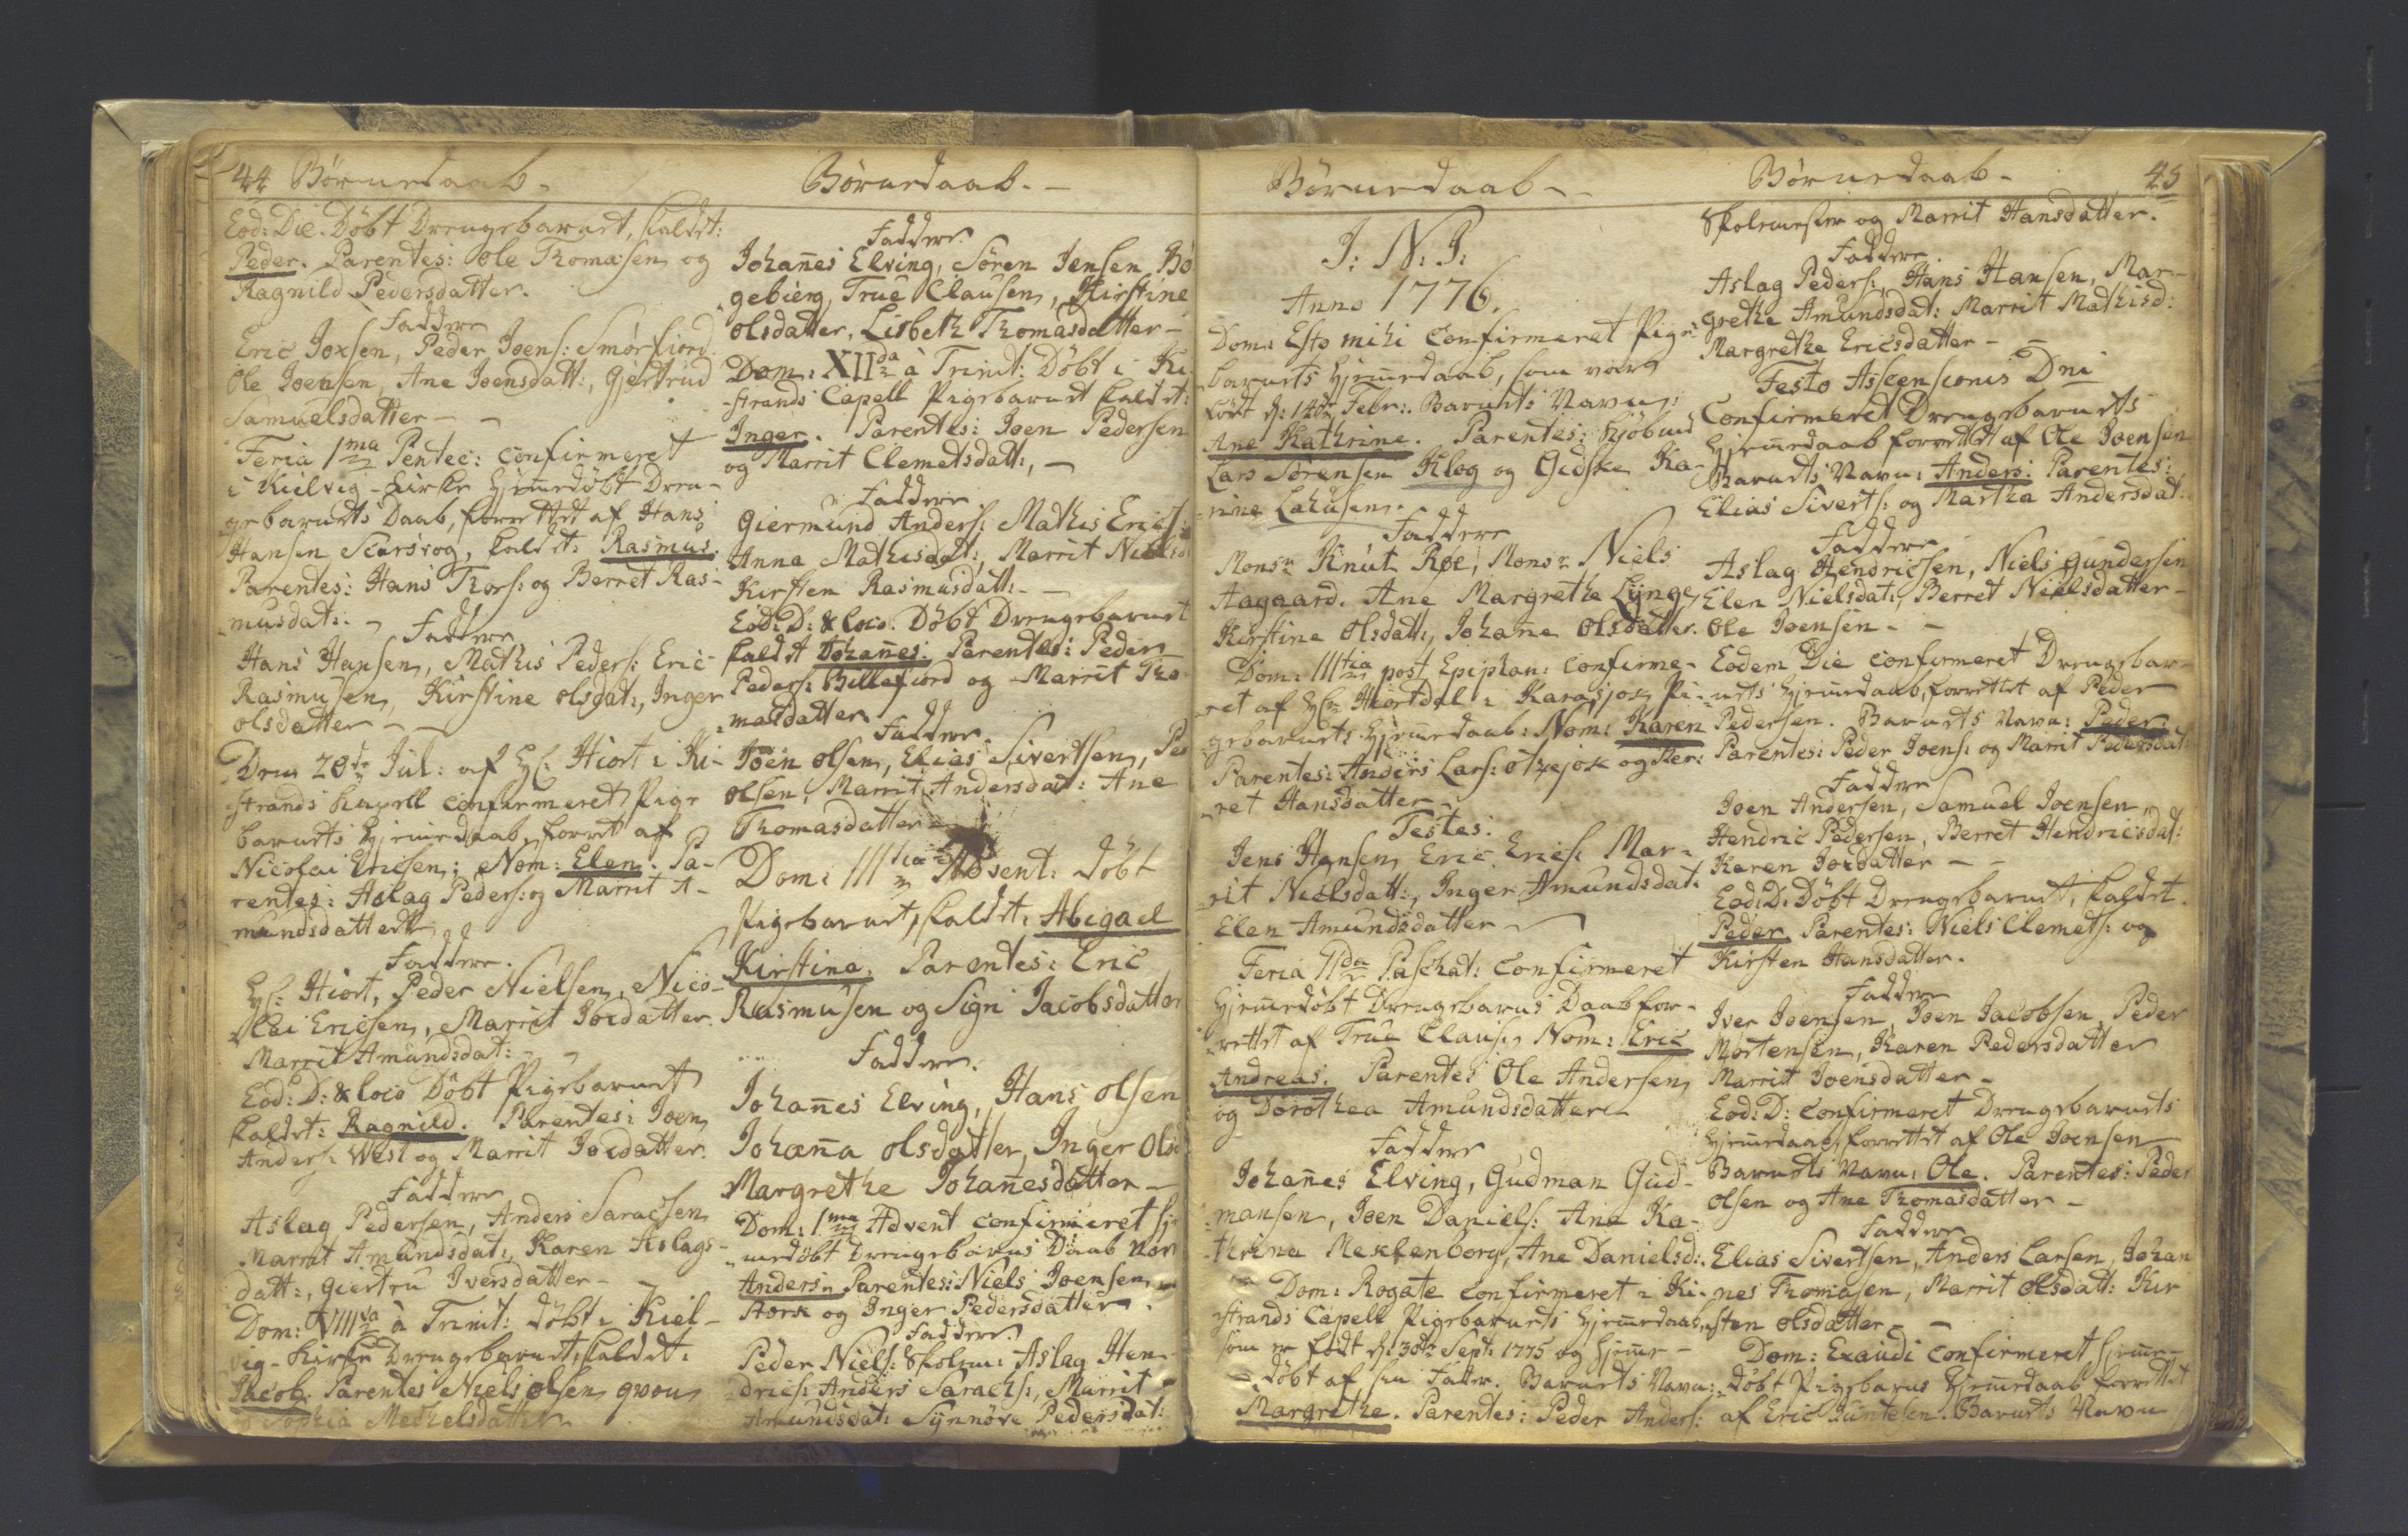 44 Börnedaab.
Eod: Die. Döbt Drengebarnet, kaldet:
Peder. Parentes: Ole Thomæsen og
Ragnild Pedersdatter.
Faddere
Eric Joxsen, Peder Joens: Smörfiord.
Ole Joensen, Ane Joensdatt:, Gjertrud
Samuelsdatter - -
Feria 1ma Pentec: confirmeret
i Kielvig-Kirke hjemedöbt Dren-
gebarnets Daab, forrettet af Hans
Hansen Skarsvog, kaldet: Rasmus.
Parentes: Hans Thors: og Berret Ras-
musdat: -
Faddere
Hans Hansen, Mathis Peders: Eric
Rasmusen, Kirstine olsdat:, Inger
olsdatter - -
Den 28de Jul: af Hr: Hiort i Ki-
strands Kapell confirmeret Pige
barnets hjemedaab, forret af
Nicolai Ericsen; Nom: Elen. Pa-
rentes: Aslag Peders: og Marrit A-
mundsdatter
Faddere.
Hr: Hiort, Peder Nielsen, Nico-
lai Ericsen, Marrit Joedatter.
Marrit Amundsdat: -
Eod: D: & loco Döbt Pigebarnet
kaldet: Ragnild. Parentes: Joen
Anders: West og Marrit Joedatter.
Faddere
Aslag Pedersen, Anders Saracsen
Marrit Amundsdat:, Karen Aslags-
datt:, giertru Iversdatter -
Dom: VIIIva à Trinit: döbt i Kiel-
vig-Kirke Drengebarnet, kaldet:
Jacob. Parentes Niels olsen qvæn
og Sophia Methelsdatter
Börnedaab. -
Faddere.
Johañes Elving, Sören Jensen Bö
gebierg, True Clausen, Kirstine
olsdatter, Lisbeth Thomasdatter -
Dom: XIIda à Trinit: Döbt i Ki-
strands Capell Pigebarnet kaldet:
Inger. Parentes: Joen Pedersen
og Marrit Clemetsdatt:, -
Faddere.
Giermund Anders: Mathis Erics:
Anna Mathisdat:, Marrit Nielsd:
Kirsten Rasmusdatt: -
Eod: D: & loco. Döbt Drengebarnet
kaldet Johañes. Parentes: Peder
Peders: Billefiord og Marrit Tho-
masdatter.
Faddere.
Joen olsen, Elias Sivertsen, Peder
olsen, Marrit Andersdat: Ane
Thomasdatter -
Dom: IIItia Advent: döbt
Pigebarnet, kaldet: Abigael
Kirstina. Parentes: Eric
Rasmusen og Sigri Jacobsdatter
Faddere.
Johañes Elving, Hans olsen
Johaña olsdatter, Inger Olsd
Margrethe Johañesdatter -
Dom: 1ma Advent confirmeret hje-
medöbt Drengebarns Daab Nom
Anders. Parentes: Niels Joensen
Stork og Inger Pedersdatter.
Faddere.
Peder Niels: Skolem: Aslag Hen-
drics: Anders Saracs:, Marrit
Amundsdat: Synnöve Pedersdat:
Börnedaab -
J: N: J:
Anno 1776.
Dom: Esto mihi confirmeret Pige
barnets hjemedaab, som var
födt d: 14de Febr: Barnets Navn:
Ane Kathrine. Parentes: Kjöbmd
Lars Sörensen Klog og Gidske Ka-
rine Lahusen.
Faddere
Monsr Knut Röe, Monsr Niels
Aagaard. Ane Margrethe Lynge
Kirstine olsdatt:, Johañe Olsdatter.
Dom: IIItia post Epiphan: confirme-
ret af Hr Hiortdal i Karasjok Pi-
gebarnets hjemedaab: Nom: Karen
Parentes: Anders Lars: Otzejok og Ber-
ret Hansdatter -
Testes:
Jens Hansen, Eric Erics: Mar-
rit Nielsdatt:, Inger Amundsdat:
Elen Amundsdatter -
Feria IIda Paschat: confirmeret
hjemedöbt Drengebarns Daab for-
rettet af True Claus:, Nom: Eric
Andreas. Parentes Ole Andersen
og Dorothea Amundsdatter
Faddere
Johañes Elving, Gudman Gud-
mansen, Joen Daniels: Ane Ka-
thrina Meklenborg, Ane Danielsd:
Dom: Rogate confirmeret i Ki-
strands Capell Pigebarnets hjemedaab,
som er födt d: 30te Sept: 1775 og hjeme-
döbt af sin Fader. Barnets Navn:
Margrethe. Parentes: Peder Anders:
Börnedaab - 45
Skolemester og Marrit Hansdatter.
Faddere.
Aslag Peders:, Hans Hansen, Mar-
grethe Amundsdat: Marrit Mathisd:
Margrethe Ericsdatter - -
Festo Ascensionis Dni
Confirmeret Drengebarnets
hjemedaab forrettet af Ole Joensen
Barnets Navn: Anders: Parentes:
Elias Siverts: og Martha Andersdat:
Faddere
Aslag Hendricsen, Niels gundersen
Elen Nielsdat:, Berret Nielsdatter -
Ole Joensen - -
Eodem Die confirmeret Drengebar-
nets hjemedaab, forrettet af Peder
Pedersen. Barnets Navn: Peder.
Parentes: Peder Joens: og Marrit Pedersdat:
Faddere
Joen Andersen, Samuel Joensen,
Hendric Pedersen, Berret Hendricsdat:
Karen Joedatter - -
Eod: D: Döbt Drengebarnet, kaldet.
Peder. Parentes: Niels Clemets: og
Kirsten Hansdatter.
Faddere
Iver Joensen, Joen Jacobsen, Peder
Mortensen, Karen Pedersdatter
Marrit Joensdatter -
Eod: D: confirmeret Drengebarnets
hjemedaab, forrettet af Ole Joensen
Barnets Navn: Ole. Parentes: Peder
olsen og Ane Thomasdatter -
Faddere
Elias Sivertsen, Anders Larsen, Johan
nes Thomasen, Marrit olsdatt: Kir
sten olsdatter - -
Dom: Exaudi confirmeret hjeme-
döbt Pigebarns hjemedaab forrettet
af Eric Guntesen. Barnets Navn